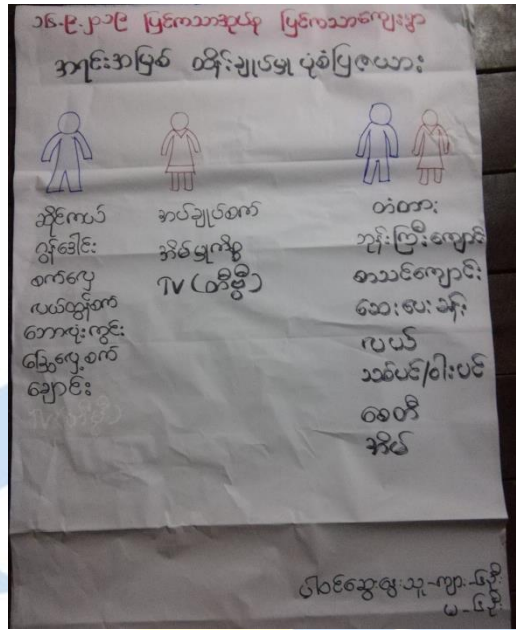 ၁၆.၉.၂၀၁၉ ပြင်ကသာအုပ်စု ပြင်ကသာကျေးရွာ
အရင်းအမြစ် ထိန်းချုပ်မှု ပုံစံပြဇယား
ဆိုင်ကယ်
ဂွန်ဒေါင်း
စက်လှေ
လယ်ထွန်စက်
ဘောလုံးကွင်း
ခြွေလှေ့စက်
ချောင်း
TV (တီဗွီ)
အပ်ချုပ်စက်
အိမ်မှုကိစ္စ
TV (တီဗွီ)
တံတား
ဘုန်းကြီးကျောင်း
စာသင်ကျောင်း
ဆေးပေးခန်း
လယ်
သစ်ပင်/ဝါးပင်
စေတီ
အိမ်
ပါဝင်ဆွေးနွေးသူ-ကျား-
မ-